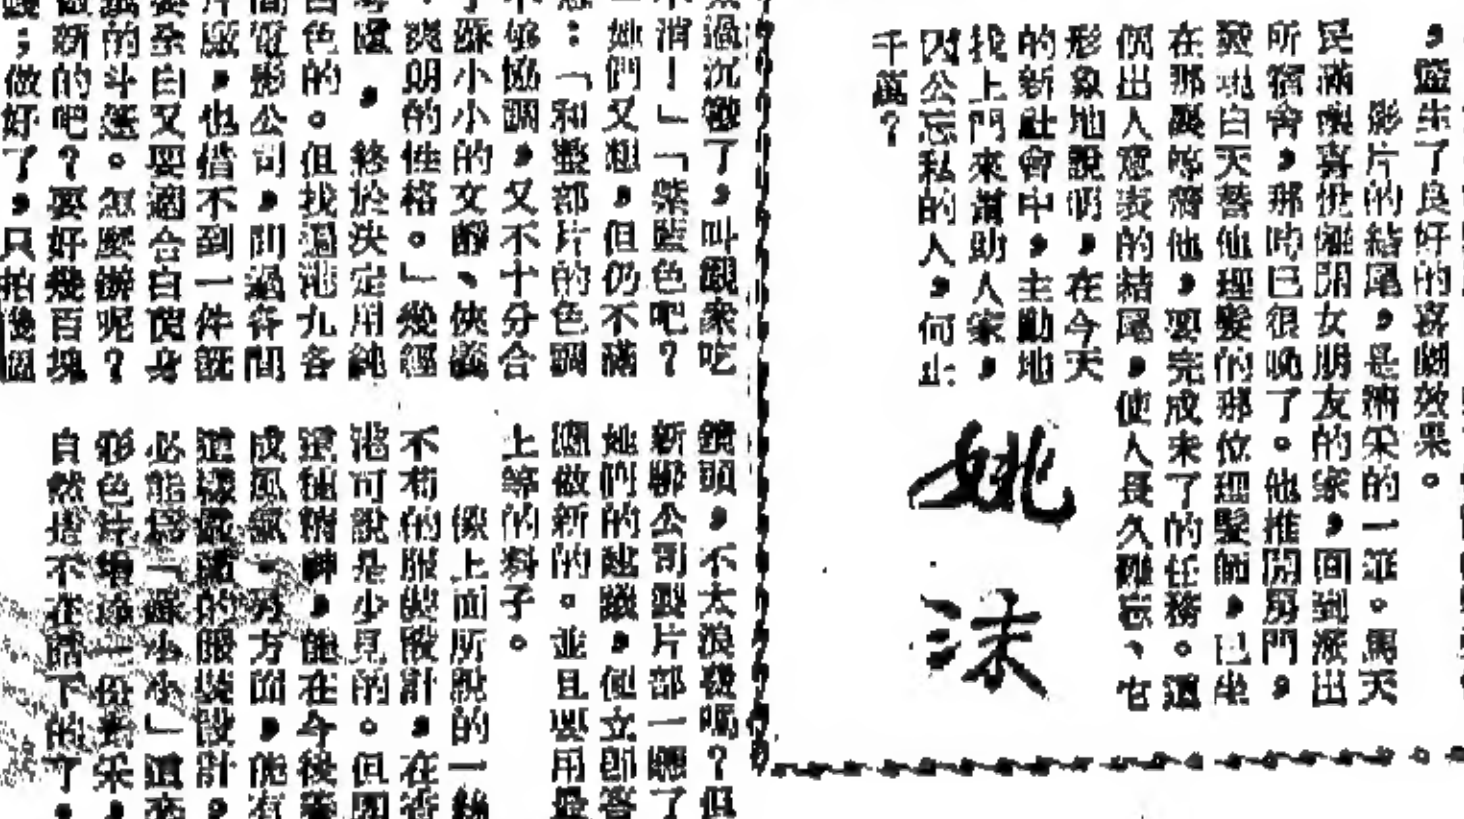 ，產生了良好的喜劇效果。
影片的結尾，是精采的一筆。馬天
民滿懷喜悅離開女朋友的家，回到派出
所宿舍，那時已很晚了。他推開房門，
發現白天替他理髮的那位理髮師，已坐
在那裏等着他，要完成未了的任務。這
個出人意表的結尾，使人長久難忘、它
形象地說明，在今天
的新社會中，主動地
找上門來幫助人家，
因公忘私的人，何止
千萬？
姚沫
過沉鬱了，叫觀衆吃
不消！」「紫藍色吧？
她們又想，但仍不滿
：「和整部片的色調
不够協調，又不十分合
蘇小小的文靜、俠義
爽朗的性格。」幾經
考慮，終於決定用純
白色的。但找過港九各
間電影公司，問過各間
片廠，也借不到一件既
要全白又要適合白茵身
的斗蓬。怎麼辦呢？
做新的吧？要好幾百塊
錢；做好了，只拍幾個
鏡頭，不太浪費嗎？但
新聯公司製片部一聽了
她們的建議，便立即答
應做新的。並且要用最
上等的料子。
像上面所說的一絲
不苟的服裝設計，在香
港可說是少見的。但
這種精神，能在今後
成風氣，另方面，能有
這樣嚴謹的服裝設計。
必能爲「蘇小小」這套
彩色片增添一份光采，
自然是不在話下的了。